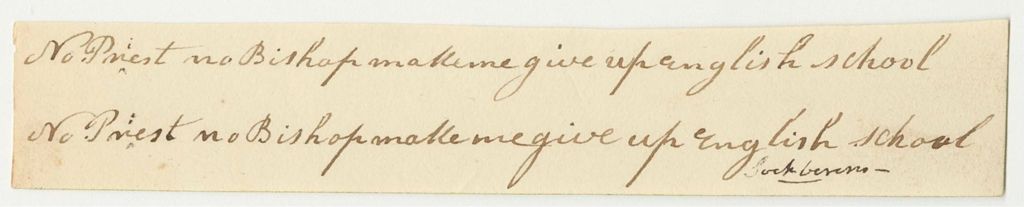 No Priest no Bishop make me give up english school
No Priest no Bishop make me give up English school